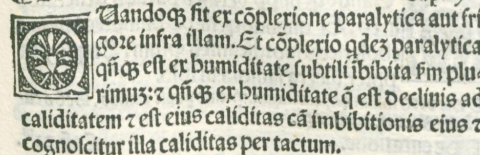 QUandoqꝫ fit ex cõplexione paralytica aut fri
gore infra illam. Et cõplexio qdeꝫ paralytica
qñqꝫ est ex humiditate subtili ĩbibita ẜm plu
rimuꝫ: ⁊ qñqꝫ ex humiditate q̃ est declinis ad
caliditatem ⁊ est eius caliditas cã imbibitionis eius ⁊
cognoscitur illa caliditas per tactum.